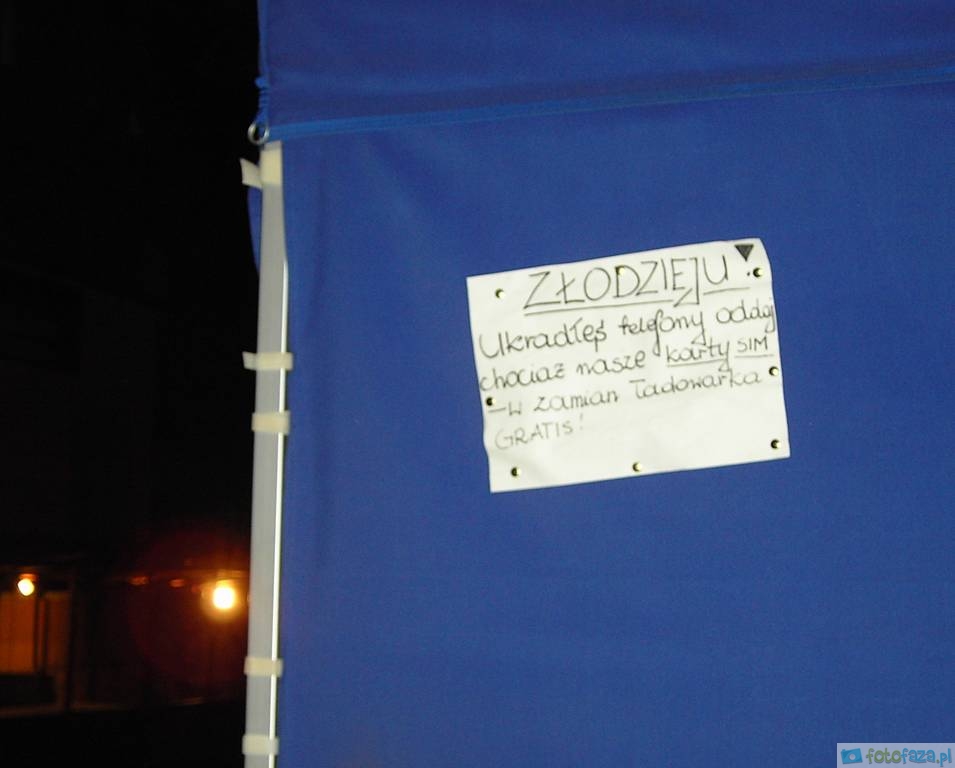 ZŁODZIEJU!
Ukradłeś telefony oddaj
chociaż nasze karty SIM
-W zamian ładowarka
GRATIS!
fotofaza.pl